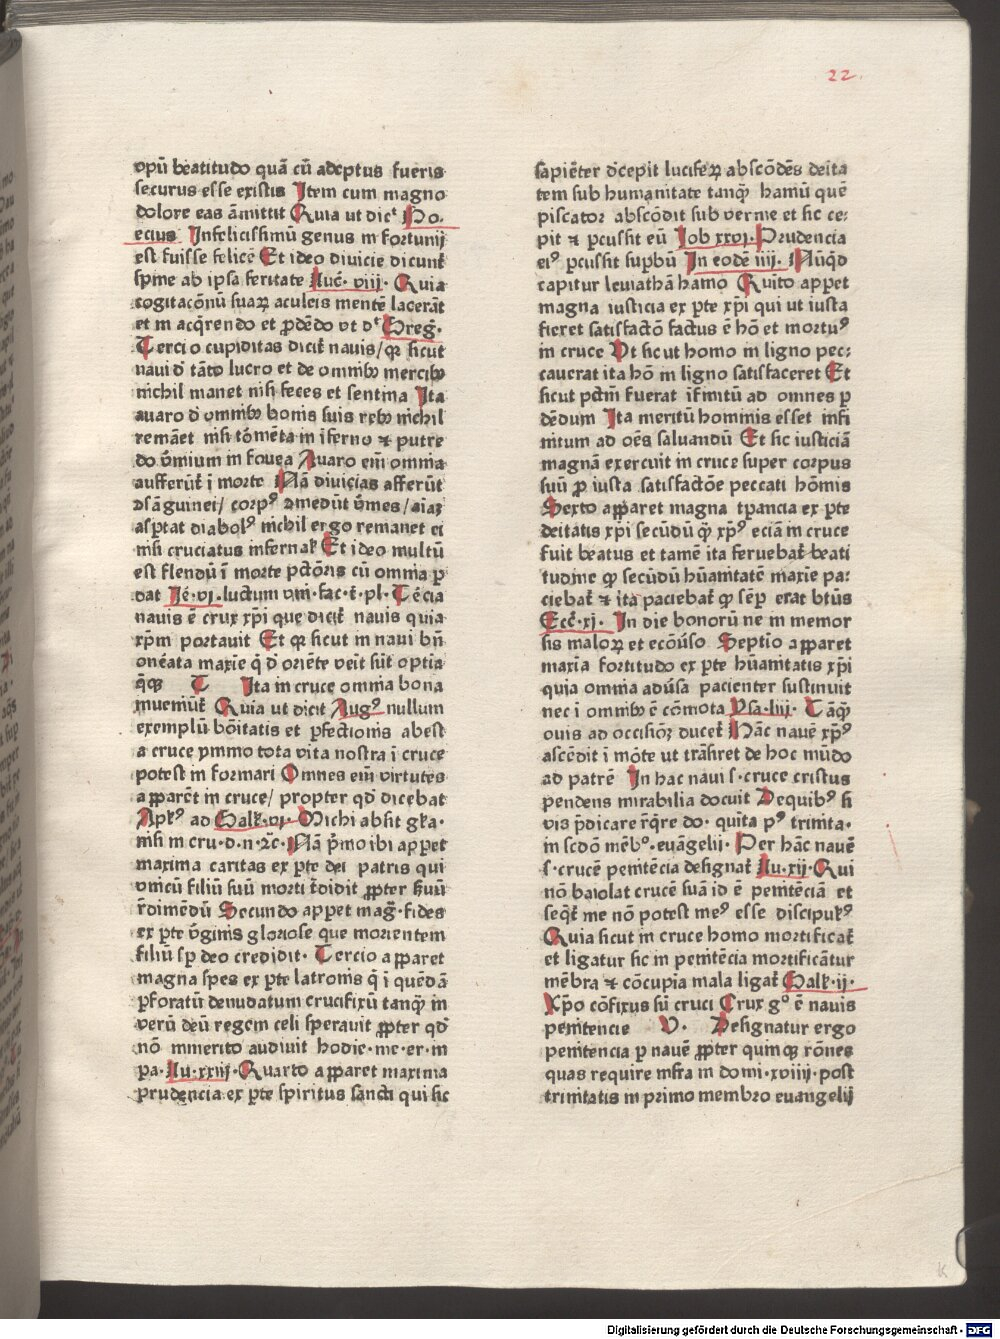 22.
opū beatitudo quā cū adeptus fueris
securus esse existis Item cum magno
dolore eas āmittit Quia ut dicᵗ Bo-
ecius Infelicissimū genus in fortunij
est fuisse felicē Et ideo divicie dicunt
spine ab ipsa feritate Luc̄. viij. Quia
cogitacōnū suaꝝ aculeis mentē lacerāt
et in acq̄rendo et ꝑdēdo vt dᵗ Greg̅.
Tercio cupiditas dicit̄ navis/qꝛ sicut
navi d̄ tāto lucro et de omnibꝫ mercibꝫ
nichil manet nisi feces et sentina Ita
avaro d̄ omnibꝫ bonis suis rebꝫ nichil
remāet nisi tōmēta in īferno ⁊ putre
do v̄mium in fovea Avaro eīn omnia
aufferūt̄ ī morte Nā divicias afferūt
ꝯsāguinei/ corpꝰ ꝯmedūt v̄mes/aīaꝫ
asp̄tat diabolꝰ nichil ergo remanet ei
nisi cruciatus infernaꝉ Et ideo multū
est flendū ī morte pctōris cū omnia ꝑ
dat Ie̅.vj.luctum vni.fac.t̄.pl. Tēcia
navis ē crux xp̄i que dicit̄ navis quia
xp̄m portavit Et qꝛ sicut in navi bn̄
onēata maxīe q̄ d̄ oriēte veīt sūt optīa
q̄qꝫ C Ita in cruce omnia bona
inueniūt̄ Quia ut dicit Augꝰ nullum
exemplū bōitatis et ꝑfectionis abest
a cruce ymmo tota vita nostra ī cruce
potest in formari Omnes eīn virtutes
apparēt in cruce/ propter qd̄ dicebat
Apꝉꝰ ad Galꝉ.vj. Michi absit gꝉa.
nisi in cru.d.n.⁊c̄. Nā p̄mo ibi appet
maxima caritas ex ꝑte dei patris qui
vnicū filiū suū morti tͬdidit ꝓpter ẜvū
r̄dimēdū Secundo appet mag̅.fides
ex ꝑte v̄ginis gloriose que morientem
filiū sp̄ deo credidit. Tercio apparet
magna spes ex ꝑte latronis q̄ ī quēdā
ꝑforatū denudatum crucifixū tanqꝫ in
verū deū regem celi speravit ꝓpter qd̄
nō inmerito audivit hodie.me.er.in
pa.Lu.xxiij.Quarto apparet maxima
prudencia ex ꝑte spiritus sancti qui sic
sapiēter d̄cepit luciferꝫ abscōdēs deita
tem sub humanitate tanqꝫ hamū quē
piscator abscōdit sub verme et sic ce:
pit ⁊ ꝑcussit eū Iob xxvj.Prudencia
eiꝰ ꝑcussit suꝑbū In eodē iiij. Nūqd
capitur leviathā hamo Quīto appet
magna iusticia ex ꝑte xp̄i qui ut iusta
fieret satisfactō factus ē hō et mortuꝰ
in cruce Vt sic ut homo in ligno pec:
caverat ita hō in ligno satisfaceret Et
sicut pctm̄ fuerat īfinitū ad omnes ꝑ
dēdum Ita meritū hominis esset infi
nitum ad oēs salvandū Et sic iusticiā
magnā exercuit in cruce super corpus
suū ꝓ iusta satisfactōe peccati hōmis
Sexto apparet magna tꝑancia ex ꝑte
deitatis xp̄i secūdū q̄ xp̄ꝰ eciā in cruce
fuit beatus et tamē ita feruebat̄ beati
tudine qꝫ secūdū hūanitatē maxīe pa:
ciebat̄ ⁊ ita paciebat̄ qꝫ sēꝑ erat btūs
Ecc̄.xj. In die bonorū ne in memor
sis maloꝝ et ecōūso Septīo apparet
maxīa fortitudo ex ꝑte hūanitatis xp̄i
quia omnia adūsa pacienter sustinuit
nec ī omnibꝫ ē cōmota Psa.liij. Tāqꝫ
ovis ad occisioꝫ ducet̄ Hāc navē xp̄ꝰ
ascēdit ī mōte ut trāhret de hoc mūdo
ad patrē In hac navi s.cruce cristus
pendens mirabilia docuit Dequibꝰ si
vis p̄dicare r̄qre do. quīta pꝰ trinita.
in scdō mēbꝰ.evāgelij. Per hāc navē
s.crucē penitēcia designat̄ Lu.xij.Qui
nō baiolat crucē suā id ē penitēciā et
seqt̄ me nō potest meꝰ esse discipuꝉꝰ
Quia sicut in cruce homo mortificat̄
et ligatur sic in penitēcia mortificātur
mēbra ⁊ cōcupīa mala ligat̄ Galꝉ.ij.
Xp̄o cōfixus sū cruci Crux gº ē navis
penitencie V. Designatur ergo
penitencia ꝑ navē ꝓpter quinqꝫ rōnes
quas require infra in domi.xviiij.post
trinitatis in primo membro evangelij
K
Digitalisierung gefördert durch die Deutsche Forschungsgemeinschaft - DFG